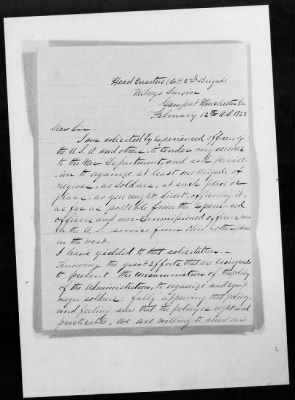 Head Quarters 2d Brigade
Milroy's Division
Camp at Winchester Va
February 12th A.D. 1863
Dear Sir.
I am solicited by experienced officers of
the U.S.A. and others, to tender my services
to the War Department, and ask permiss-
ion to organize at least one Brigade of
negroes, as soldiers, at such place or
places, as you might direct, officering it,
as far as possible from the experienced
officers and non-Commissioned officers now
in the U.S. service from New York
in the west.
I have yielded to that solicitation.
Knowing the great efforts that are being made
to prevent the consummation of the policy
of the Administration, to organize and
negro soldiers, fully approving that policy,
and feeling sure that the policy is right and
practicable, we are willing to